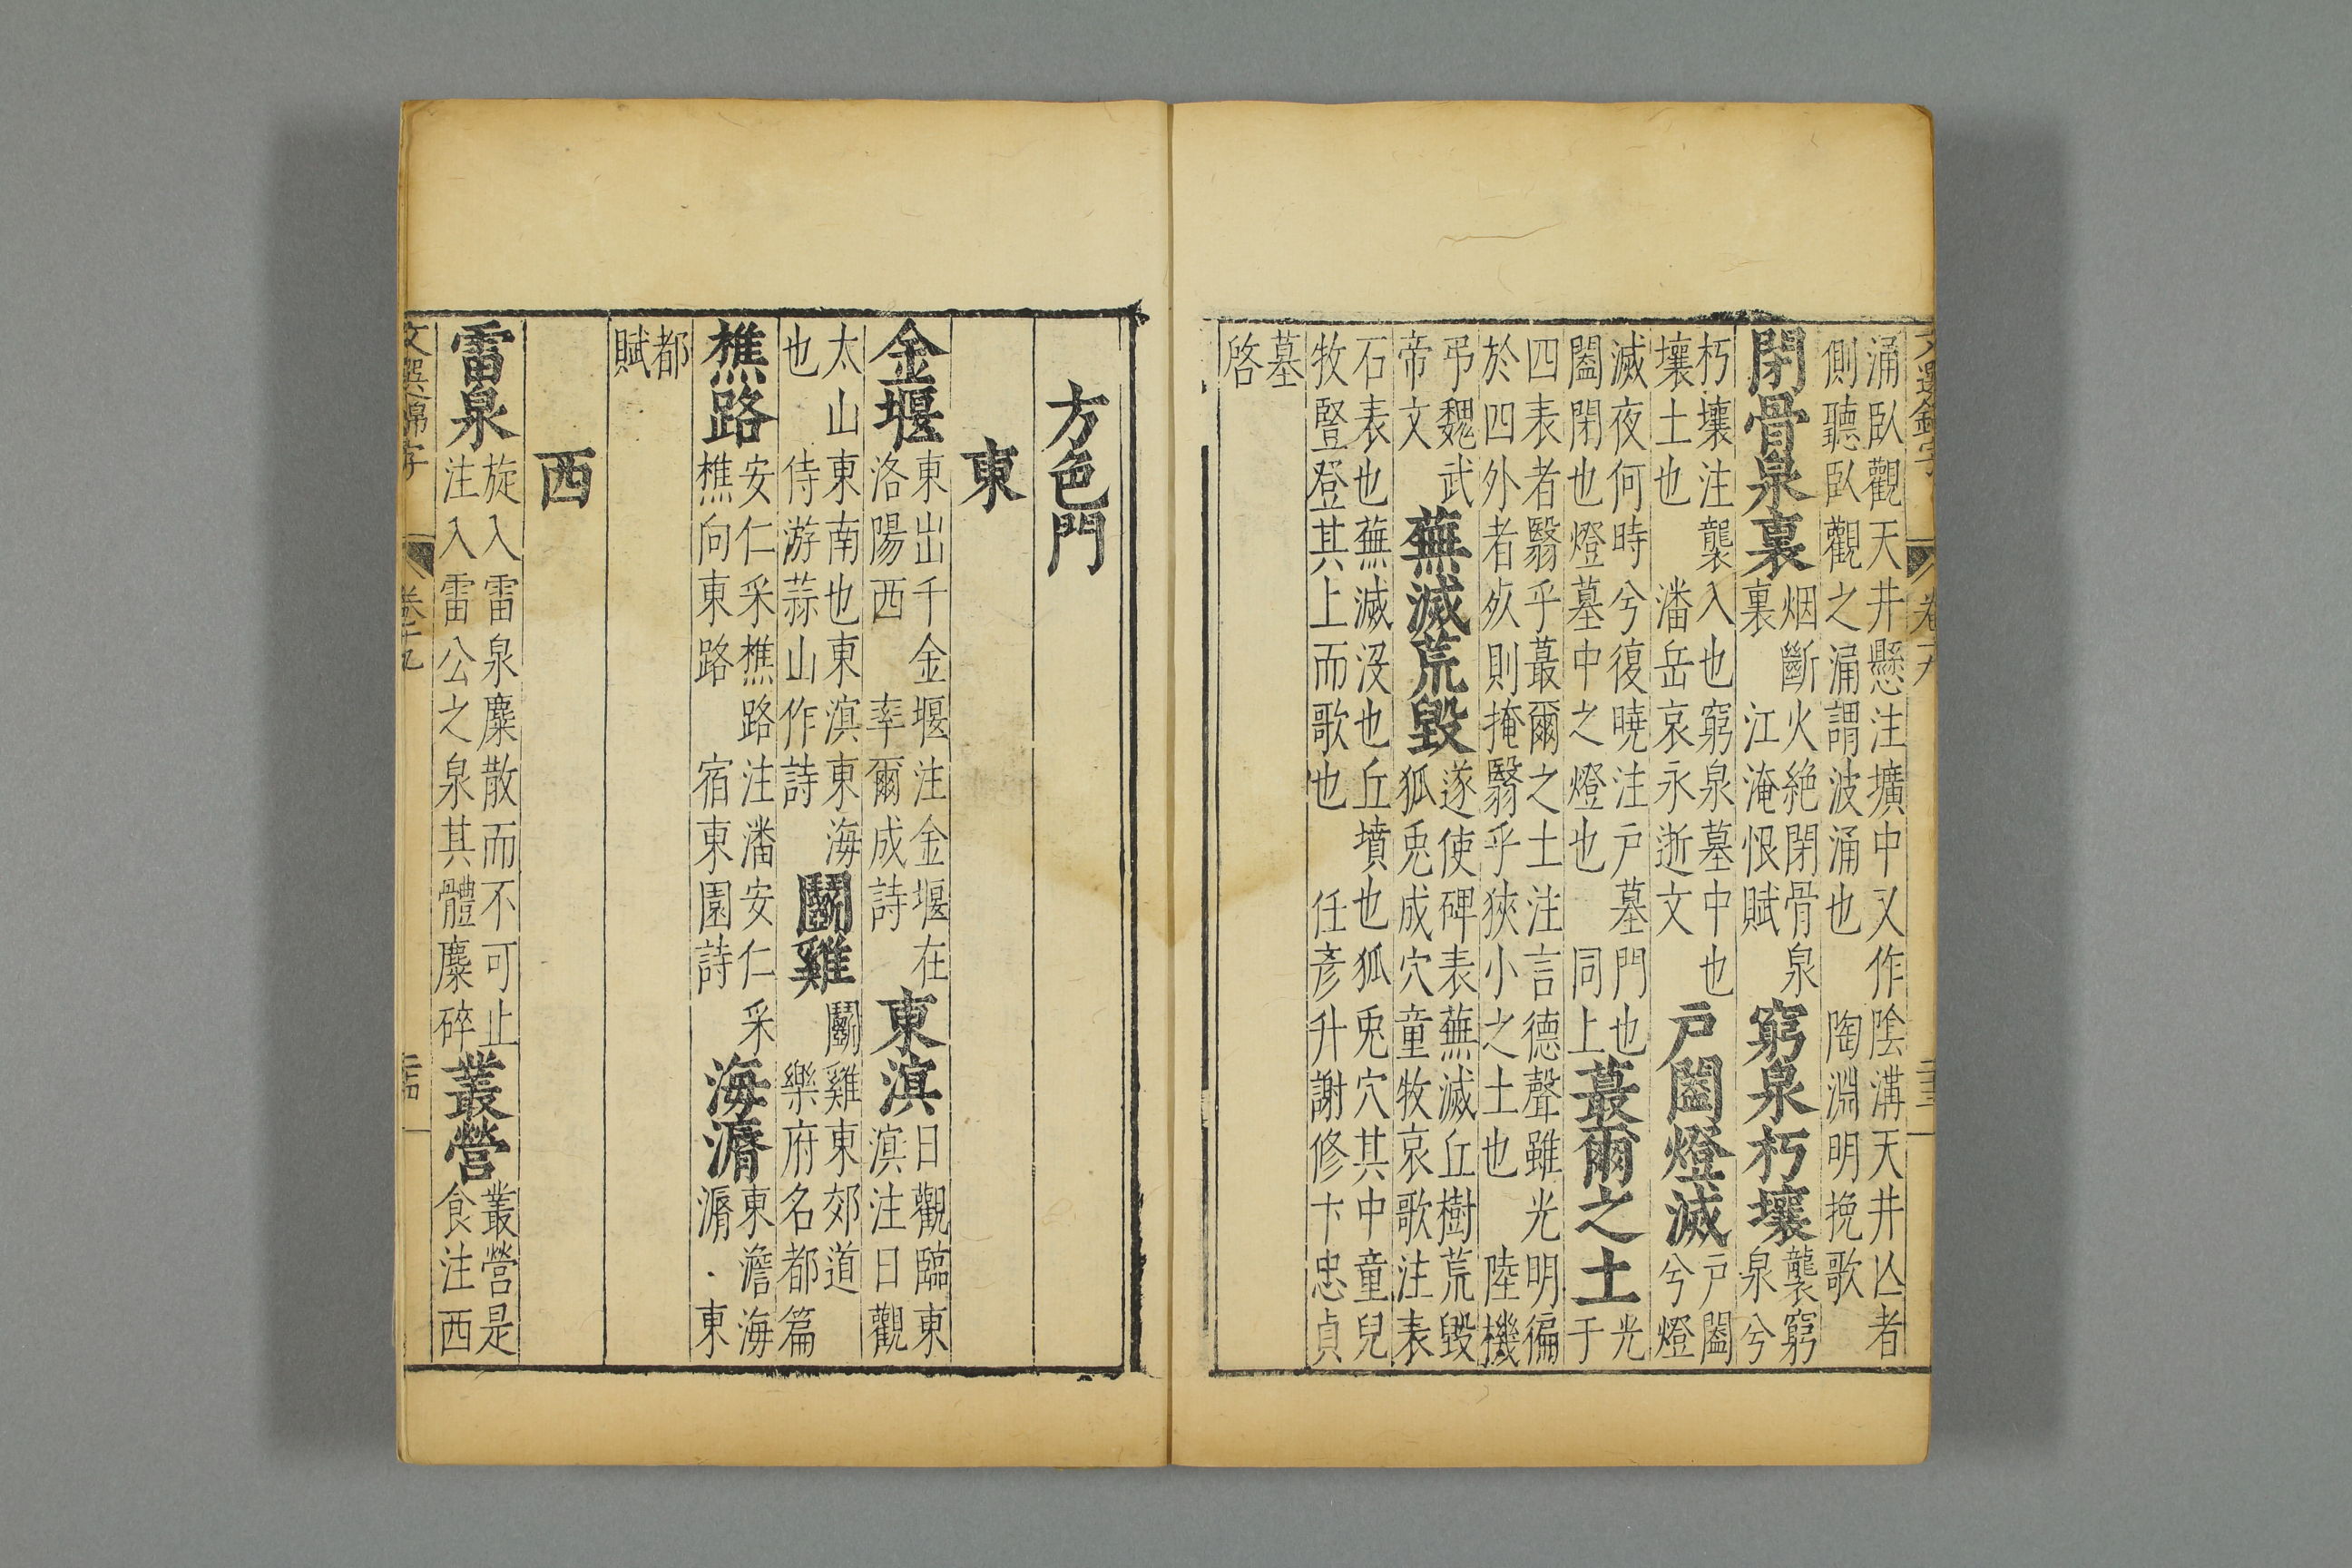 文選錦字 卷十九 二十三
涌臥觀天井懸注壙中又作陰溝天井亾者
側聽臥觀之涌謂波涌也 陶淵明挽歌
閉骨泉裏 烟斷火絶閉骨泉裏 江淹恨賦 窮泉朽壤 襲窮泉兮
朽壤注襲入也窮泉墓中也壤土也 潘岳哀永逝文 戸闔燈滅 戸闔兮燈
滅夜何時兮復曉注戸墓門也闔閉也燈墓中之燈也 同上 蕞爾之土 光于
四表者翳乎蕞爾之土注言德聲雖光明徧
於四外者歿則掩翳乎狹小之土也 陸機
弔魏武帝文 蕪滅荒毀 遂使碑表蕪滅丘樹荒毀狐兎成穴童牧哀歌注表
石表也蕪滅沒也丘墳也狐兎穴其中童兒
牧豎登其上而歌也 任彥升謝修卞忠貞
墓啓
方色門
東
金堰 東出千金堰注金堰在洛陽西 率爾成詩 東溟 日觀臨東溟注日觀
太山東南也東溟東海也 侍游蒜山作詩 鬬雞 鬬雞東郊道 樂府名都篇
樵路 安仁采樵路注潘安仁采樵向東路 宿東園詩 海漘 東澹海漘 東
都賦
西
雷泉 旋入雷泉麋散而不可止注入雷公之泉其體麋碎 叢營 叢營是食注西
文選錦字 卷十九 二十四